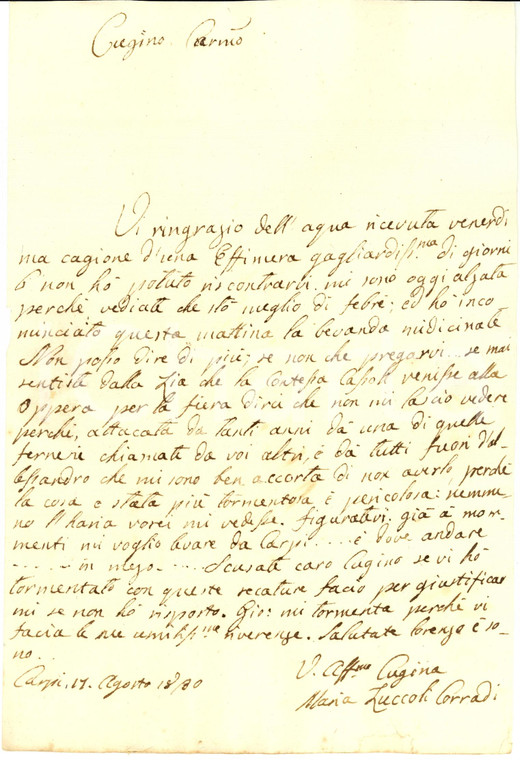 Cugino Carmo
Vi ringrazio dell'aqua ricevuta venerdi
ma cagione d'una Effimera gagliardissma di giorni
6 non hò potuto riscontrarvi. mi sono oggi alzata
perchè vediate che stò meglio di febre; ed hò inco
minciato questa mattina la bevanda midicinale
Non posso dire di più; se non che pregarvi... se mai
sentiste dalla Zia che la Contessa venisse alla
Oppera per la fiera dirci che non mi lascio vedere
perchè, attacata da tanti anni da una di quelle
fernerie chiamate da voi altri, è da tutti fuori d'Al-
lessandro che mi sono ben accorta di non averlo, perchè
la cosa è stata più tormentosa è pericolosa: nemme-
no l'haria vorei mi vedesse. figuratevi. già à mom-
menti mi voglio levare da Carpi.... è dove andare
...... in mezo..... Scusate caro Cugino se vi hò
tormentato con queste secature facio per giustificar
mi se non hò risposto. Gio: mi tormenta perchè vi
facia le sue umilissme riverenze. Salutate Lorenzo è so-
no..
Carpi, 17. Agosto 1830
V. Affma Cugina
Maria Luccoli Corradi